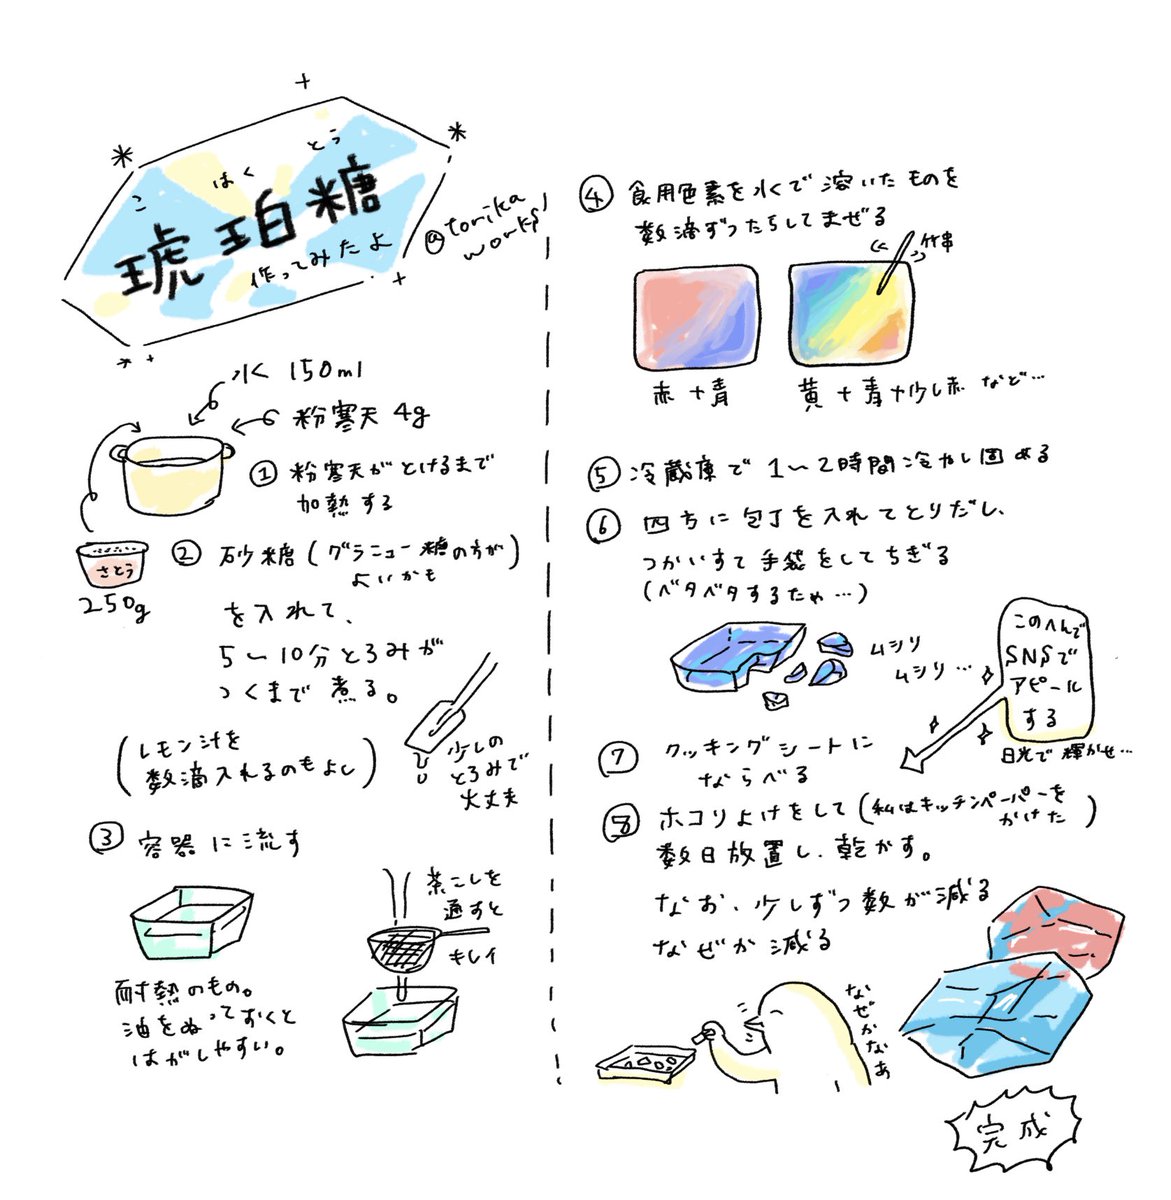 こ はく とう
琥珀糖
作ってみたよ
@torika
works
水 150ml
粉寒天 4g
① 粉寒天がとけるまで
加熱する
さとう
250g
② 砂糖(グラニュー糖の方が
よいかも)
を入れて、
5〜10分とろみが
つくまで煮る。
(レモン汁を
数滴入れるのもよし)
少しの
とろみで
大丈夫
③ 容器に流す
耐熱のもの。
油をぬっておくと
はがしやすい。
茶こしを
通すと
キレイ
④ 食用色素を水で溶いたものを
数滴ずつたらしてまぜる
竹串
赤+青
黄+青+少し赤 など…
⑤ 冷蔵庫で1〜2時間冷やし固める
⑥ 四方に包丁を入れてとりだし、
つかいすて手袋をしてちぎる
(ベタベタするため…)
ムシリ
ムシリ…
このへんで
SNSで
アピール
する
日光で輝かせ…
⑦ クッキングシートに
ならべる
⑧ ホコリよけをして(私はキッチンペーパーを
かけた)
数日放置し、乾かす。
なお、少しずつ数が減る
なぜか減る
なぜかなぁ
完成